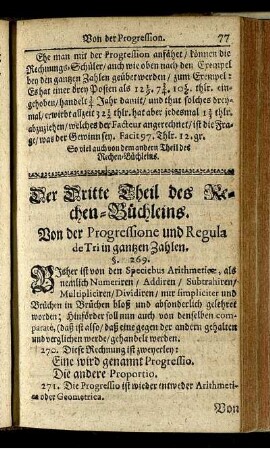 Von der Progression. 77
Ehe man mit der Progression anfähet / können die
Rechnungs-Schüler / auch wie oben nach den Exempel
bey den gantzen Zahlen geübet werden / zum Exempel:
Es hat einer drey Posten als 12½. 7¾. 10½. thlr. ein-
gehoben / handelt ¾ Jahr damit / und thut solches drey-
mal / erwirbt allzeit 22½ thlr. hat aber jedesmal 1¾ thlr.
abzuziehen / welches der Facteur angerechnet / ist die Fra-
ge / was der Gewinn sey. Facit 97. Thlr. 12. gr.
So viel auch von dem andern Theil des
Rechen-Büchleins.
Der Dritte Theil des Re-
chen-Büchleins.
Von der Progressione und Regula
de Tri in gantzen Zahlen.
§. 269.
BIsher ist von den Speciebus Arithmeticæ, als
nemlich Numeriren / Addiren / Subtrahiren /
Multipliciren / Dividiren / nur simpliciter und
Brüchen in Brüchen bloß und absonderlich gelehret
worden; Hinförder soll nun auch von denselben com-
parate, (daß ist also / daß eine gegen der andern gehalten
und verglichen werde / gehandelt werden.
270. Diese Rechnung ist zweyerley:
Eine wird genannt Progressio.
Die andere Proportio.
271. Die Progressio ist wieder entweder Arithmeti-
ca oder Geometrica.
Von